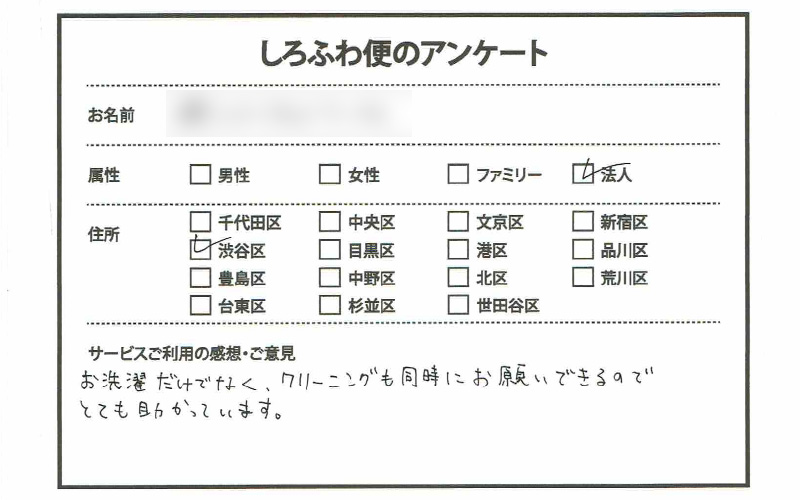 しろふわ便のアンケート
お名前
属性 □ 男性 □ 女性 □ ファミリー ☑ 法人
住所 □ 千代田区 □ 中央区 □ 文京区 □ 新宿区
☑ 渋谷区 □ 目黒区 □ 港区 □ 品川区
□ 豊島区 □ 中野区 □ 北区 □ 荒川区
□ 台東区 □ 杉並区 □ 世田谷区
サービスご利用の感想・ご意見
お洗濯だけでなく、クリーニングも同時にお願いできるので
とても助かっています。